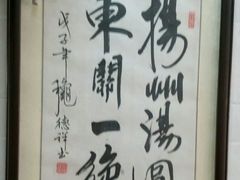 揚州湯圓
東關一絶
戊子年 德祥书